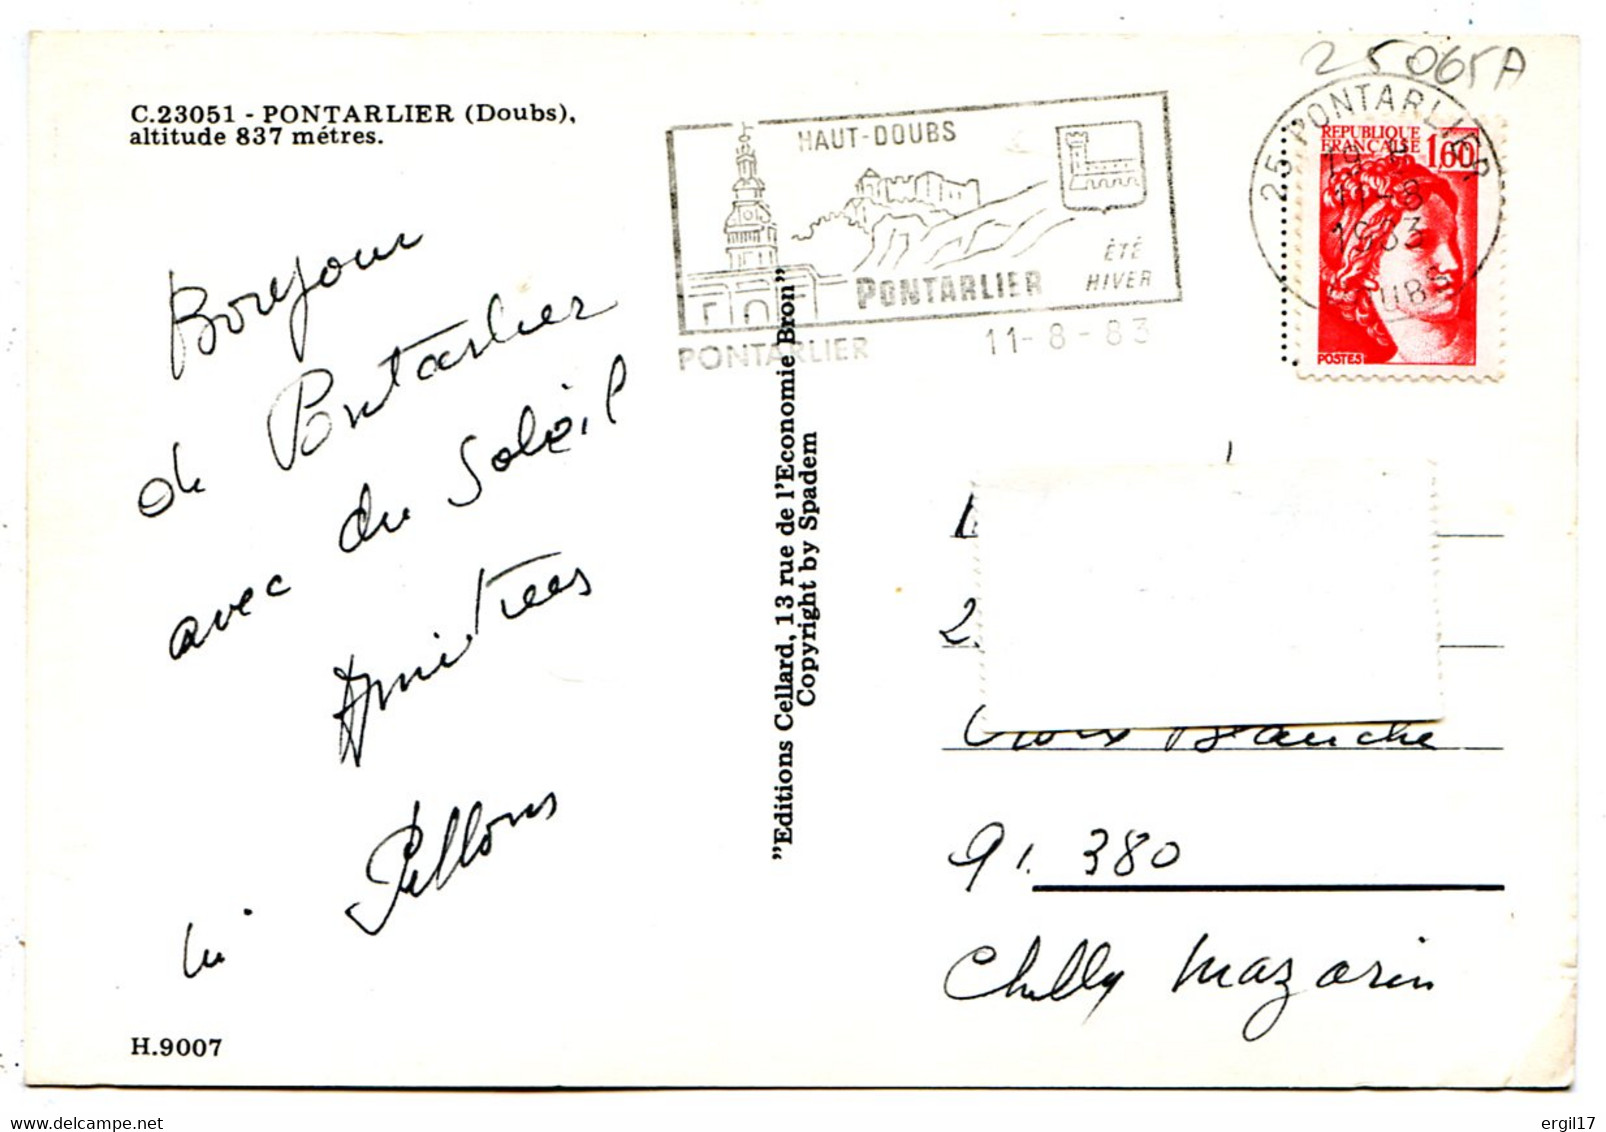 C.23051 - PONTARLIER (Doubs),
altitude 837 métres.
25065A
HAUT-DOUBS
PONTARLIER
ÉTÉ
HIVER
PONTARLIER 11-8-83
25 PONTARLIER
19 H
11-8
1983
DOUBS
REPUBLIQUE
FRANÇAISE 1,60
POSTES
Bonjour
de Pontarlier
avec du Soleil
Amitiées
"Editions Cellard, 13 rue de l'Economie Bron"
Copyright by Spadem
2.
Croix Blanche
91. 380
Chilly Mazarin
H.9007
delcampe.net
ergil17